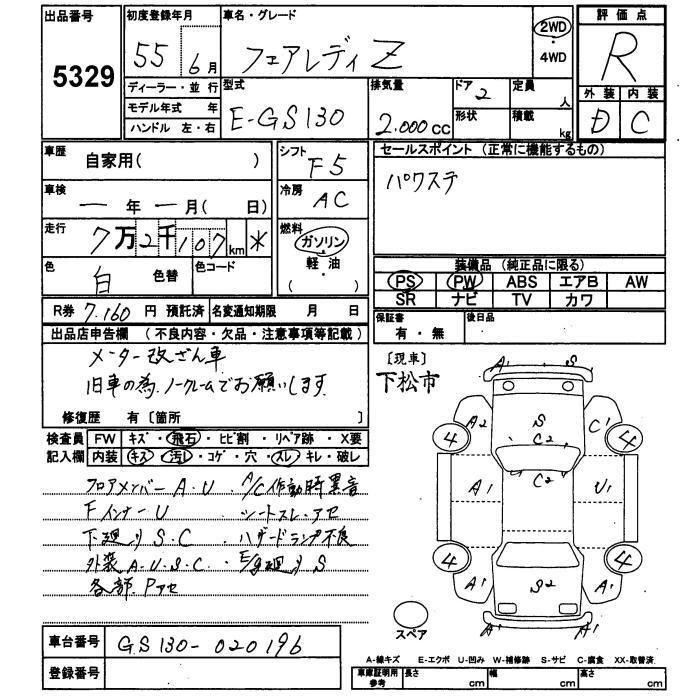 出品番号
5329
初度登録年月
55 6月
ディーラー・並行
モデル年式 年
ハンドル 左・右
車名・グレード
フェアレディ Z
2WD
・
4WD
型式
E-GS130
排気量
2.000cc
ドア
2
形状
定員
人
積載
kg
評価点
R
外装 内装
D C
車歴
自家用( )
車検
— 年 — 月( 日)
走行
7万2千107km *
色
白 色替
色コード
シフト
F5
冷房
AC
燃料
ガソリン
・
軽・油
( )
セールスポイント (正常に機能するもの)
パワステ
装備品 (純正品に限る)
PS PW ABS エアB AW
SR ナビ TV カワ
保証書
有・無
後日品
R券 7.160 円 預託済 名変通知期限 月 日
出品店申告欄 (不良内容・欠品・注意事項等記載)
メーター改ざん車
旧車の為、ノークレームでお願いします。
修復歴 有〔箇所 〕
検査員
記入欄
FW キズ・飛石・ヒビ割・リペア跡・X要
内装 キズ・汚レ・コゲ・穴・スレ・キレ・破レ
フロアメンバー A.U . A/C作動時異音
Fインナー U シートスレ.アセ
下廻り S.C ハザードランプ不良
外装 A.U.S.C. E/g廻り S
各部.Pアセ
車台番号 GS130-020196
登録番号
〔現車〕
下松市
A1 S
A2 S C1
4 C2 4
C2
A1 U1
4 4
A1 S2 A1
A1 A1
スペア
A-線キズ E-エクボ U-凹み W-補修跡 S-サビ C-腐食 XX-取替済
車庫証明用
参考
長さ cm
幅 cm
高さ cm